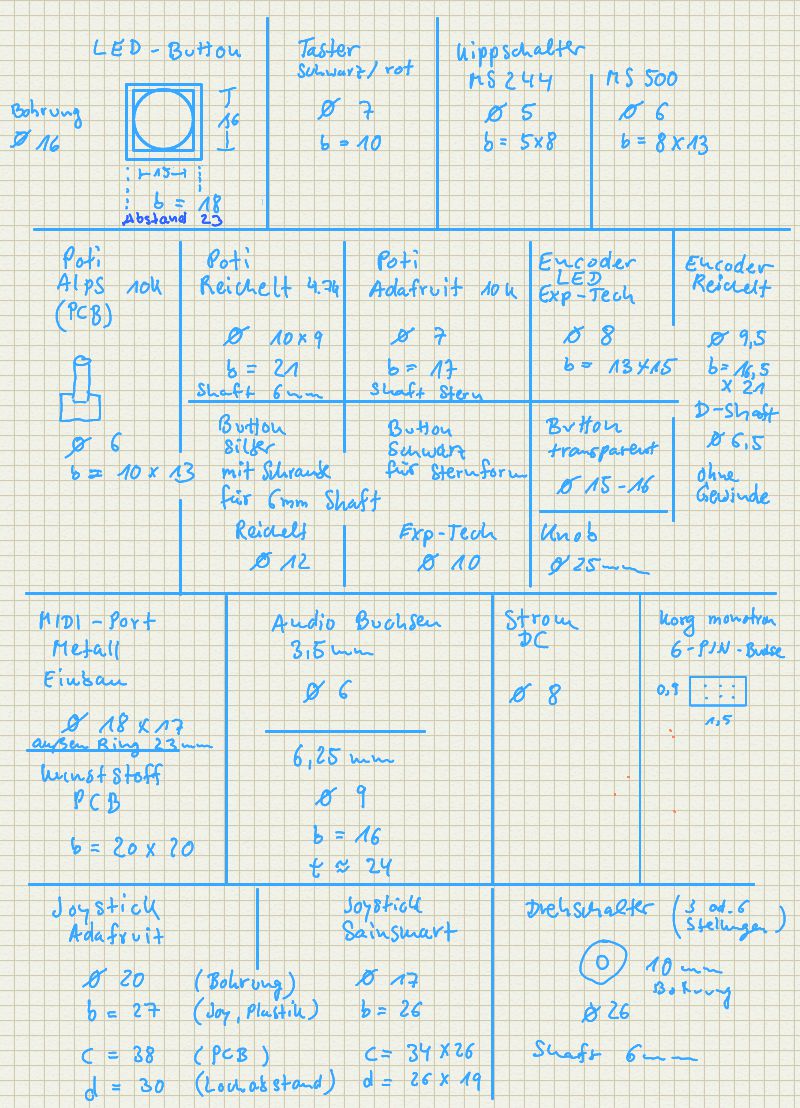 LED - Button
Bohrung
Ø 16
16
15
b = 18
Abstand 23
Taster
Schwarz/rot
Ø 7
b = 10
Kippschalter
MS 244
Ø 5
b = 5x8
MS 500
Ø 6
b = 8 x 13
Poti
Alps 10k
(PCB)
Ø 6
b = 10 x 13
Poti
Reichelt 4.7k
Ø 10 x 9
b = 21
Shaft 6mm
Poti
Adafruit 10k
Ø 7
b = 17
Shaft Stern
Encoder
LED
Exp-Tech
Ø 8
b = 13x15
Encoder
Reichelt
Ø 9,5
b = 16,5
x 21
D-Shaft
Ø 6,5
ohne
Gewinde
Button
Silber
mit Schraube
für 6mm Shaft
Reichelt
Ø 12
Button
Schwarz
für Sternform
Exp-Tech
Ø 10
Button
transparent
Ø 15-16
Knob
Ø 25mm
MIDI-Port
Metall
Einbau
Ø 18 x 17
außen Ring 23mm
Kunststoff
PCB
b = 20 x 20
Audio Buchsen
3,5mm
Ø 6
6,25 mm
Ø 9
b = 16
t ≈ 24
Strom
DC
Ø 8
Korg monotron
6-PIN-Buchse
0,9
1,5
Joystick
Adafruit
Ø 20 (Bohrung)
b = 27 (Joy, Plastik)
c = 38 (PCB)
d = 30 (Lochabstand)
Joystick
Sainsmart
Ø 17
b = 26
c = 34 x 26
d = 26 x 19
Drehschalter (3 od. 6
Stellungen)
10 mm
Bohrung
Ø 26
Shaft 6mm